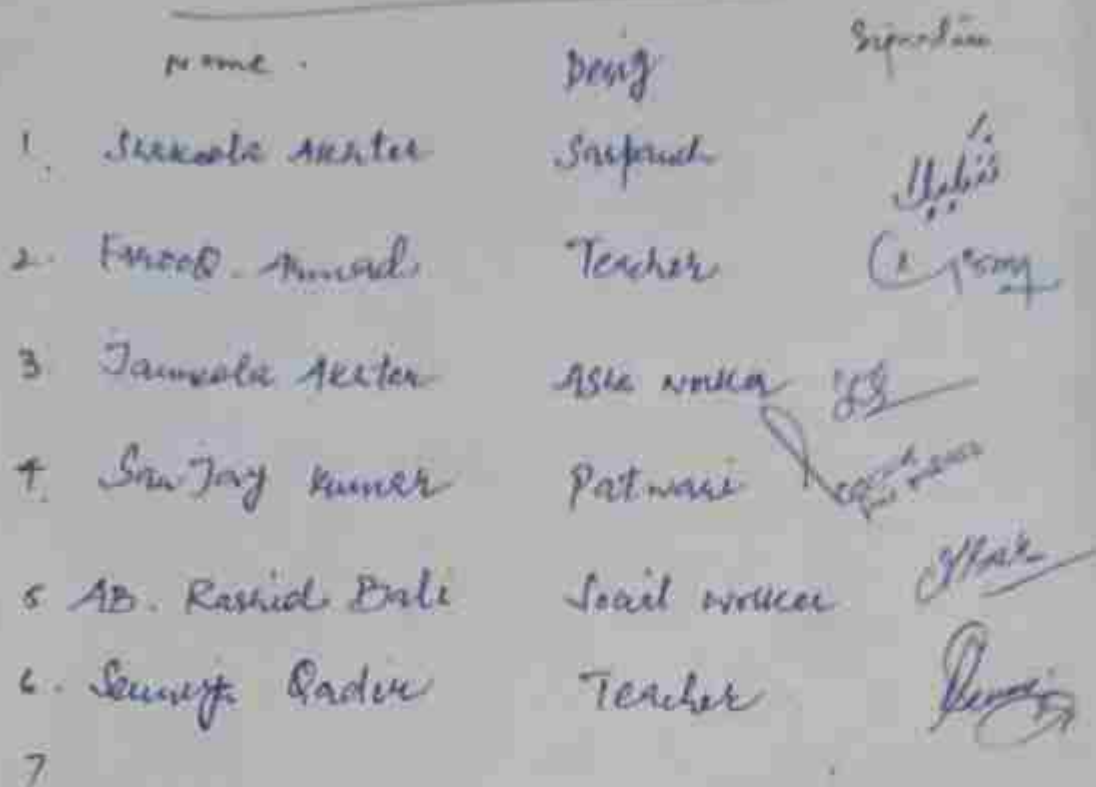 Name. Desig Signature
1. Shakeela Akhter Sarpanch شکیلہ
2. FarooQ Ahmad Teacher
3. Jameela Akhter Asha worker
4. SanJay Kumar Patwari
5 AB. Rashid Bali Socil worker
6. Qadir Teacher
7